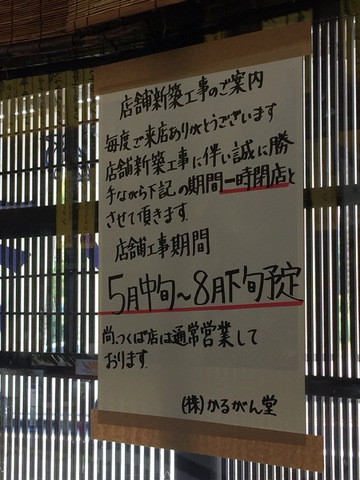 店舗新築工事のご案内
毎度ご来店ありがとうございます
店舗新築工事に伴い誠に勝
手ながら下記の期間一時閉店と
させて頂きます.
店舗工事期間
5月中旬〜8月下旬予定
尚、つくば店は通常営業して
おります.
(株)かるがん堂